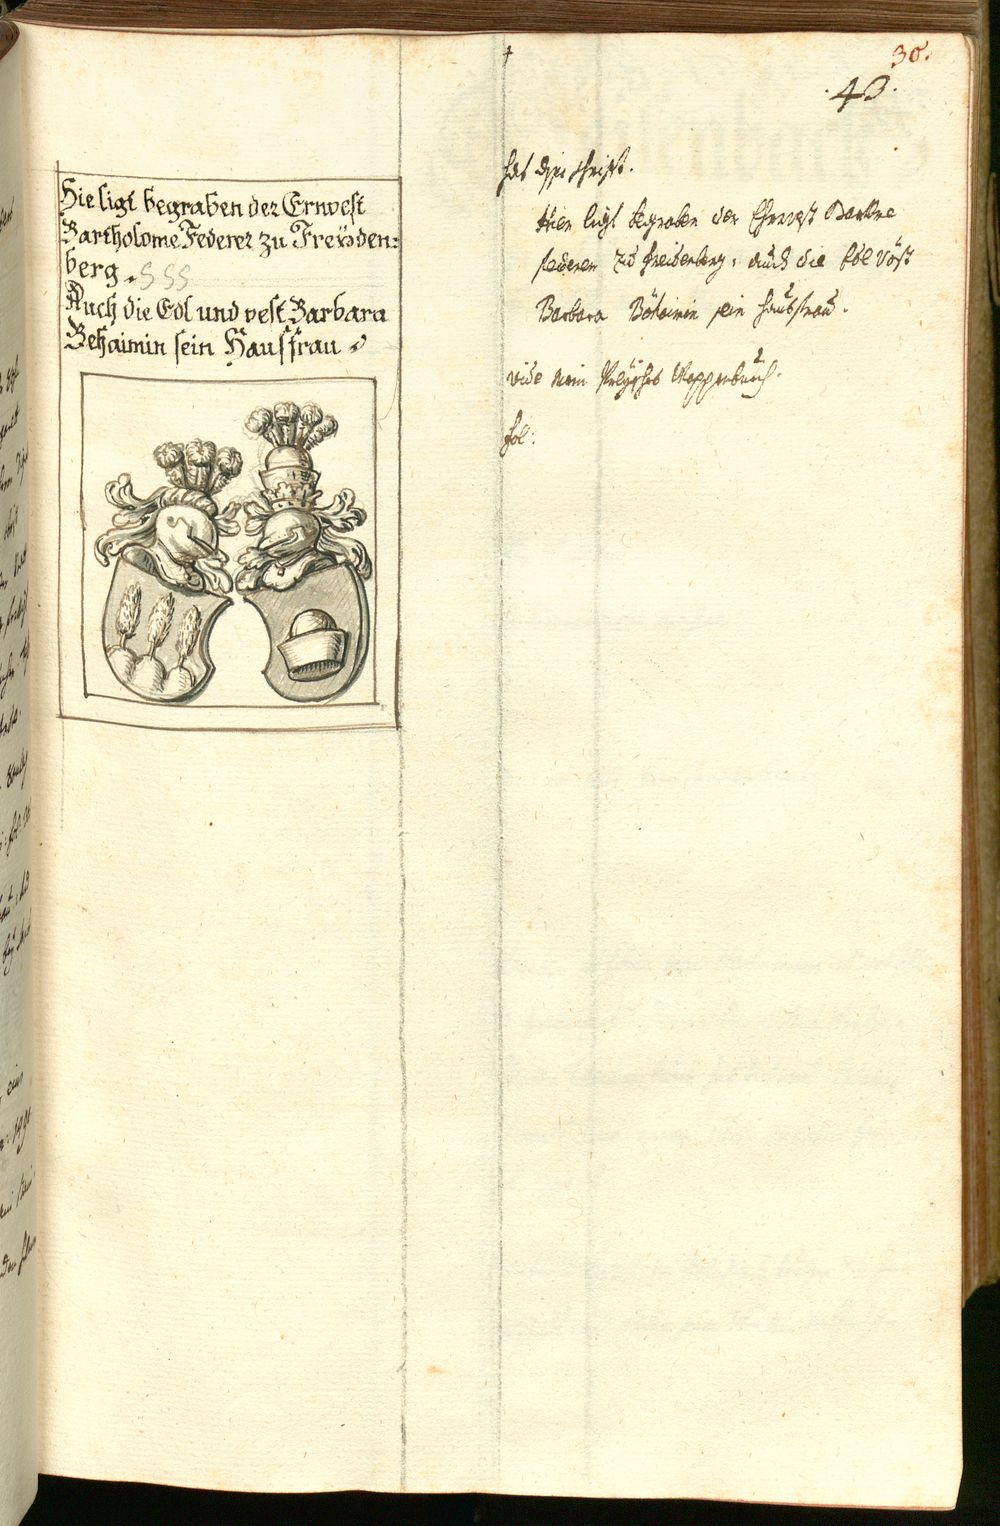 30.
43.
Hie ligt begraben der Ernvest
Bartholome Federer zu Freÿden:
berg. SSS
Auch die Edl und vest Barbara
Behaimin sein Hausfrau
hat disse schrifft.
Hier ligt begraben der Ehrnvest Bartlme
federer zu freidenberg, auch die Edl vöst
Barbara Böhaimin sein haubsfrau.
vide mein Wappenbuech.
fol: